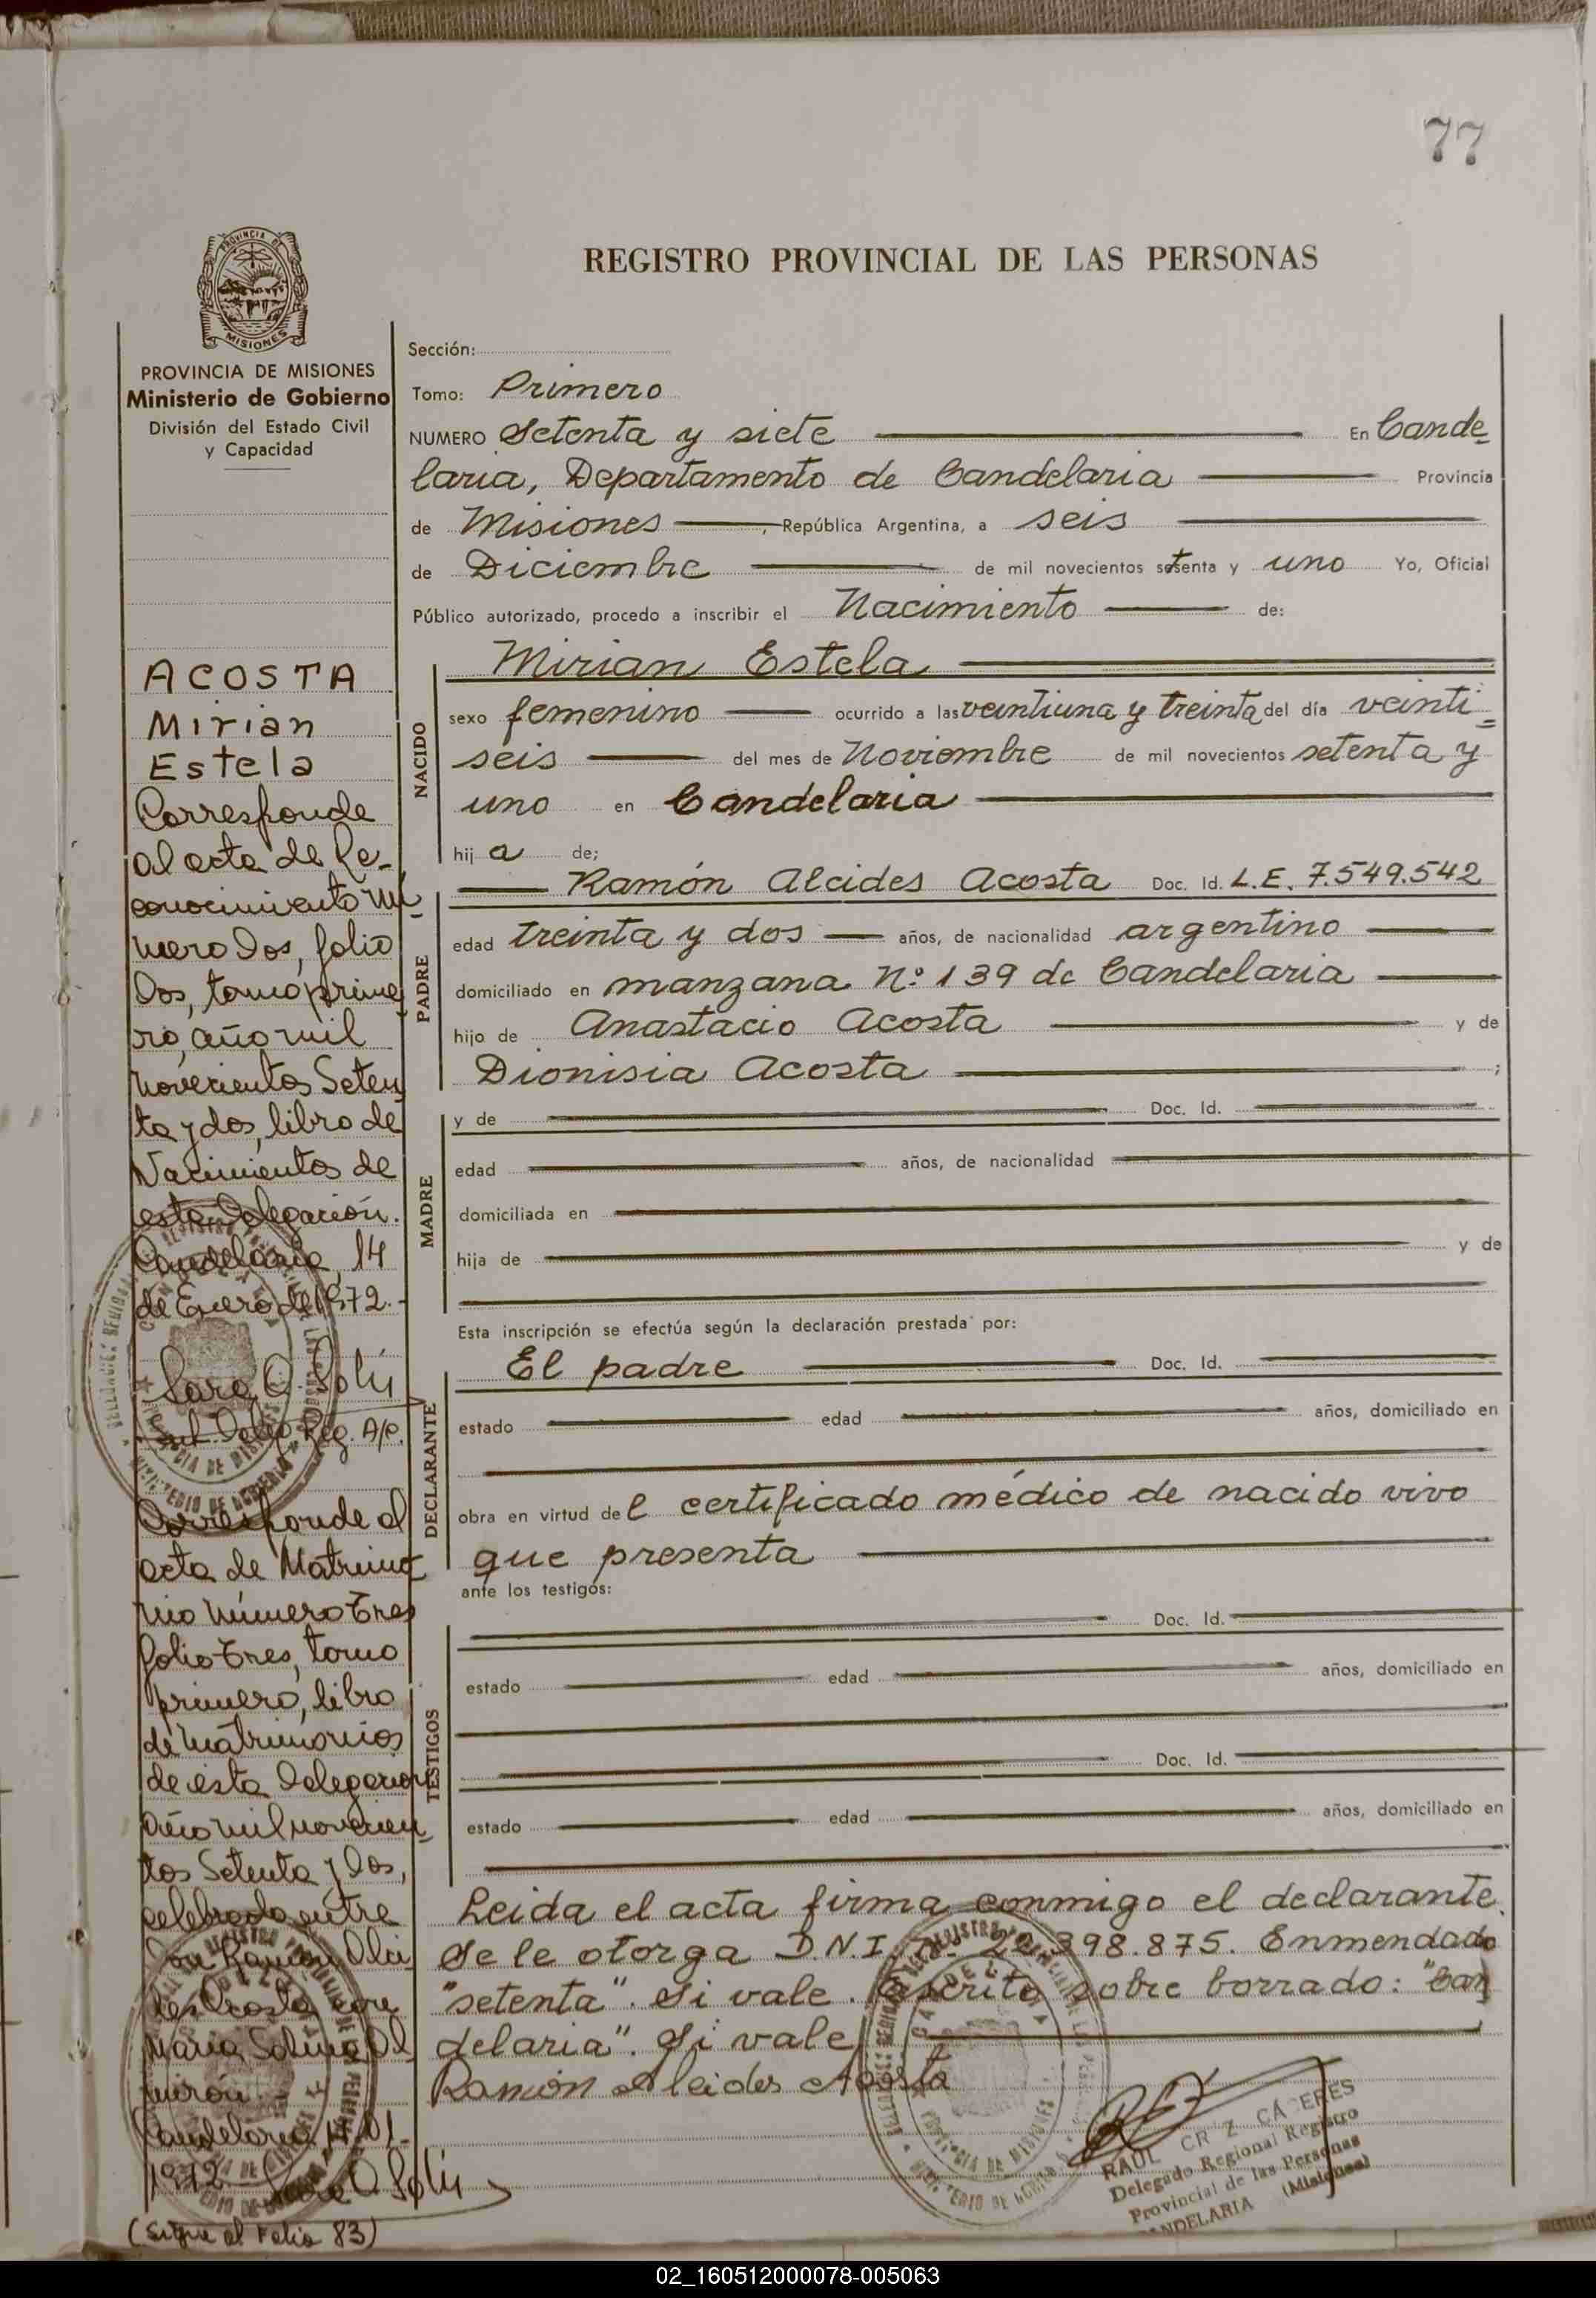 77
REGISTRO PROVINCIAL DE LAS PERSONAS
PROVINCIA DE
MISIONES
PROVINCIA DE MISIONES
Ministerio de Gobierno
División del Estado Civil
y Capacidad
ACOSTA
Mirian
Estela
Corresponde
al acta de Re-
conocimiento nú-
mero dos, folio
dos, tomo prime-
ro, año mil
novecientos Seten
ta y dos, libro de
Nacimientos de
esta Delegación.
Candelaria, 14
de Enero de 1972.-
Sara O. Solis
Sub. Deleg. Reg. A/c.
Corresponde al
acta de Matrimo-
nio número tres
folio tres, tomo
primero, libro
de matrimonios
de esta Delegación
año mil novecien-
tos Setenta y dos,
celebrado entre
Don Ramón Alci
des Acosta con
María
Candelaria 14.01.
1972
(Sigue al Folio 83)
Sección:
Tomo: Primero
NUMERO Setenta y siete En Cande-
laria, Departamento de Candelaria Provincia
de Misiones, República Argentina, a seis
de Diciembre de mil novecientos setenta y uno Yo, Oficial
Público autorizado, procedo a inscribir el Nacimiento de:
NACIDO
Mirian Estela
sexo femenino ocurrido a las veintiuna y treinta del día veinti=
seis del mes de Noviembre de mil novecientos setenta y
uno en Candelaria
hij a de;
PADRE
Ramón Alcides Acosta Doc. Id. L.E. 7.549.542
edad treinta y dos años, de nacionalidad argentino
domiciliado en manzana Nº 139 de Candelaria
hijo de Anastacio Acosta y de
Dionisia Acosta ;
MADRE
y de Doc. Id.
edad años, de nacionalidad
domiciliada en
hija de y de
Esta inscripción se efectúa según la declaración prestada por:
DECLARANTE
El padre Doc. Id.
estado edad años, domiciliado en
obra en virtud del certificado médico de nacido vivo
que presenta
ante los testigos:
TESTIGOS
Doc. Id.
estado edad años, domiciliado en
Doc. Id.
estado edad años, domiciliado en
Leida el acta firma conmigo el declarante.
Se le otorga D.N.I. Nº 22.398.875. Enmendado
"setenta". Si vale. Escrito sobre borrado: "Can
delaria". Si vale
Ramón Alcides Acosta
RAUL CR Z CACERES
Delegado Regional Registro
Provincial de las Personas
ANDELARIA (Misiones)
02_160512000078-005063